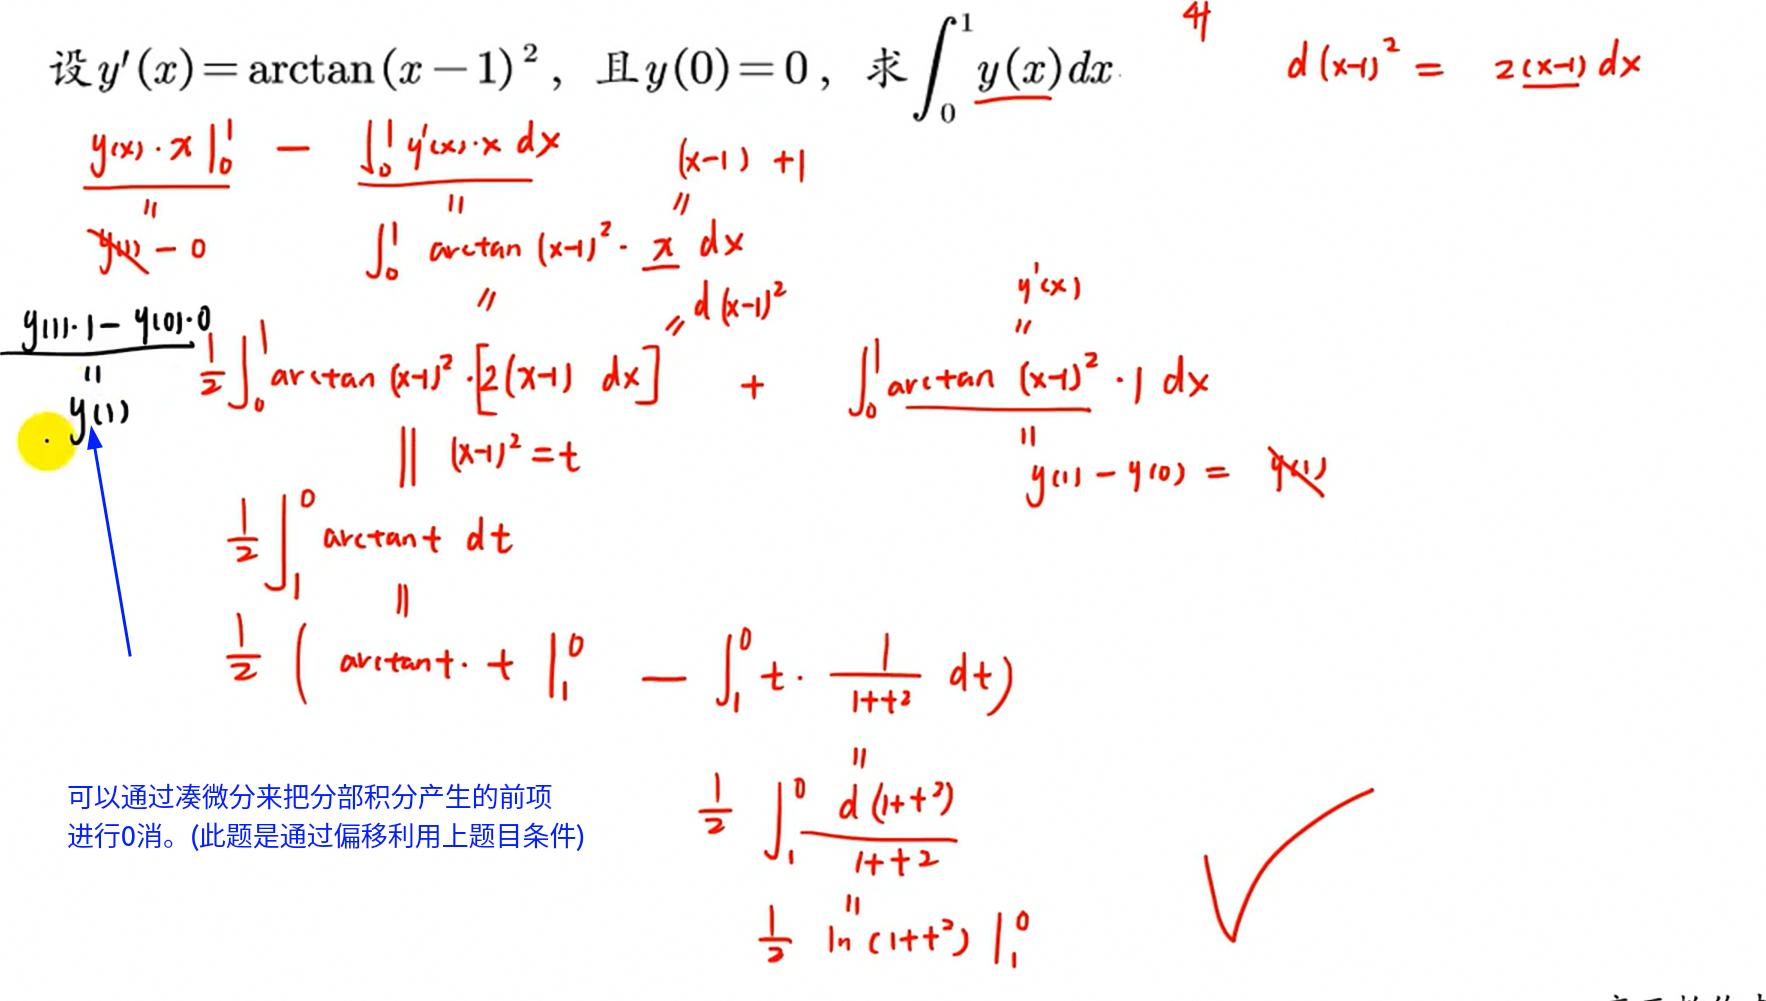 设 y′(x)=arctan(x−1)², 且y(0)=0, 求∫₀¹ y(x)dx
4
d(x-1)² = 2(x-1)dx
y(x)·x|₀¹ − ∫₀¹ y'(x)·x dx
(x-1) +1
= = =
y(1) − 0
∫₀¹ arctan (x-1)² · x dx
= d(x-1)²
y'(x)
y(1)·1 − y(0)·0
= =
½∫₀¹ arctan (x-1)² · [2(x-1) dx] + ∫₀¹ arctan (x-1)² · 1 dx
=
y(1)
|| (x-1)² = t
=
y(1) − y(0) = y(1)
½∫₁⁰ arctant dt
=
½ ( arctant · t |₁⁰ − ∫₁⁰ t · 1/(1+t²) dt)
=
½ ∫₁⁰ d(1+t²)/(1+t²)
可以通过凑微分来把分部积分产生的前项
进行0消。(此题是通过偏移利用上题目条件)
=
½ ln(1+t²) |₁⁰